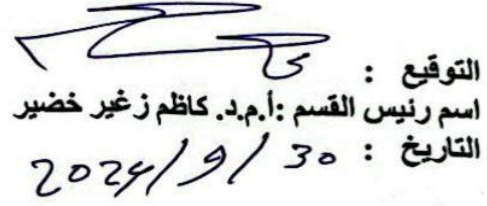 التوقيع :
اسم رئيس القسم :أ.م.د. كاظم زغير خضير
التاريخ : 30 / 9 / 2024